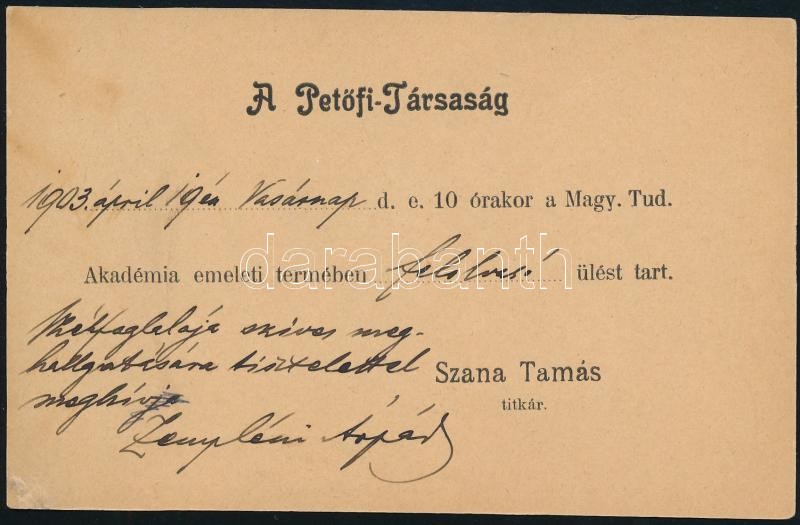 A Petőfi-Társaság
1903. ápril 19én Vasárnap d. e. 10 órakor a Magy. Tud.
Akadémia emeleti termében felolvasó ülést tart.
Székfoglalója szives meg-
hallgatására tisztelettel
meghívja
Zempléni Árpád
Szana Tamás
titkár.
darabanth.com